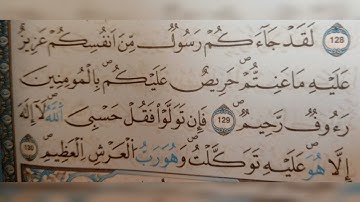 128 لَقَدْ جَآءَكُمْ رَسُولٌ مِّنْ اَنْفُسِكُمْ عَزِيْزٌ
عَلَيْهِ مَا عَنِتُّمْ حَرِيْصٌ عَلَيْكُمْ بِالْمُوْمِنِيْنَ
رَءُوْفٌ رَّحِيْمٌ 129 فَاِنْ تَوَلَّوْا فَقُلْ حَسْبِيَ اللّٰهُ لَآ اِلٰهَ
اِلَّا هُوَ عَلَيْهِ تَوَكَّلْتُ وَهُوَ رَبُّ الْعَرْشِ الْعَظِيْمِ